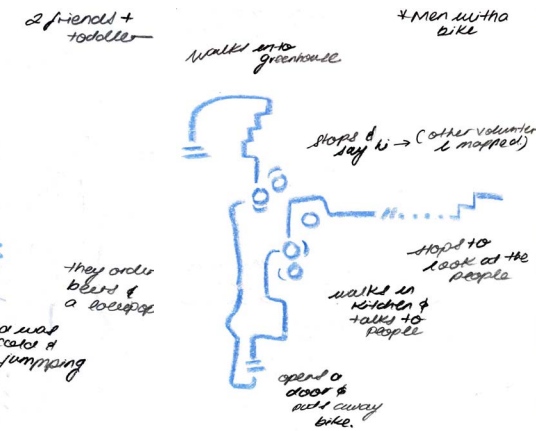 2 friends +
toddler
* Men with a
bike
walks into
greenhouse
stops &
say hi → (other volunter
I mapped)
stops to
look at the
people
they order
beers &
a
walks in
kitchen &
talks to
people
was
cold &
jumpping
opens a
door &
puts away
bike.